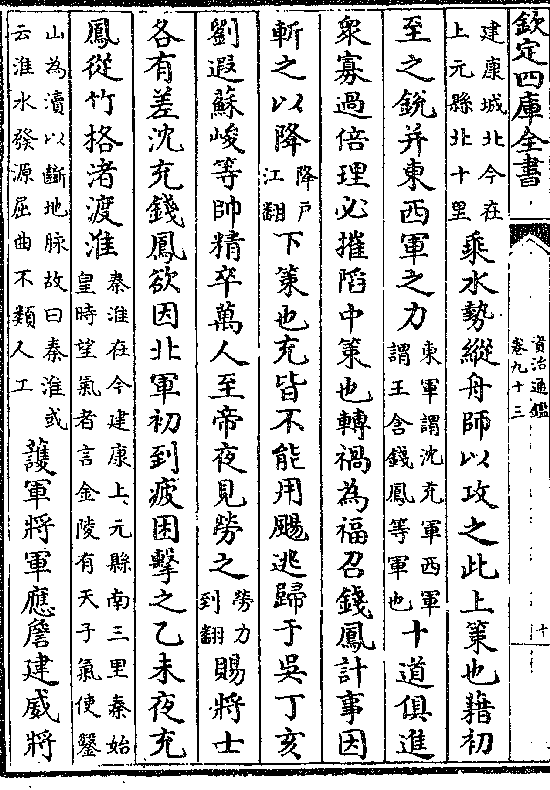 欽定四庫全書
資治通鑑
卷九十三
十
建康城北今在
上元縣北十里
乘水勢縱舟師以攻之此上策也藉初
至之銳并東西軍之力
東軍謂沈充軍西軍
謂王含錢鳳等軍也
十道俱進
衆寡過倍理必摧陷中策也轉禍為福召錢鳳計事因
斬之以降
降戶
江翻
下策也充皆不能用颺逃歸于吳丁亥
劉遐蘇峻等帥精卒萬人至帝夜見勞之
勞力
到翻
賜將士
各有差沈充錢鳳欲因北軍初到疲困擊之乙未夜充
鳳從竹格渚渡淮
秦淮在今建康上元縣南三里秦始
皇時望氣者言金陵有天子氣使鑿
山為瀆以斷地脉故曰秦淮或
云淮水發源屈曲不類人工
護軍將軍應詹建威將